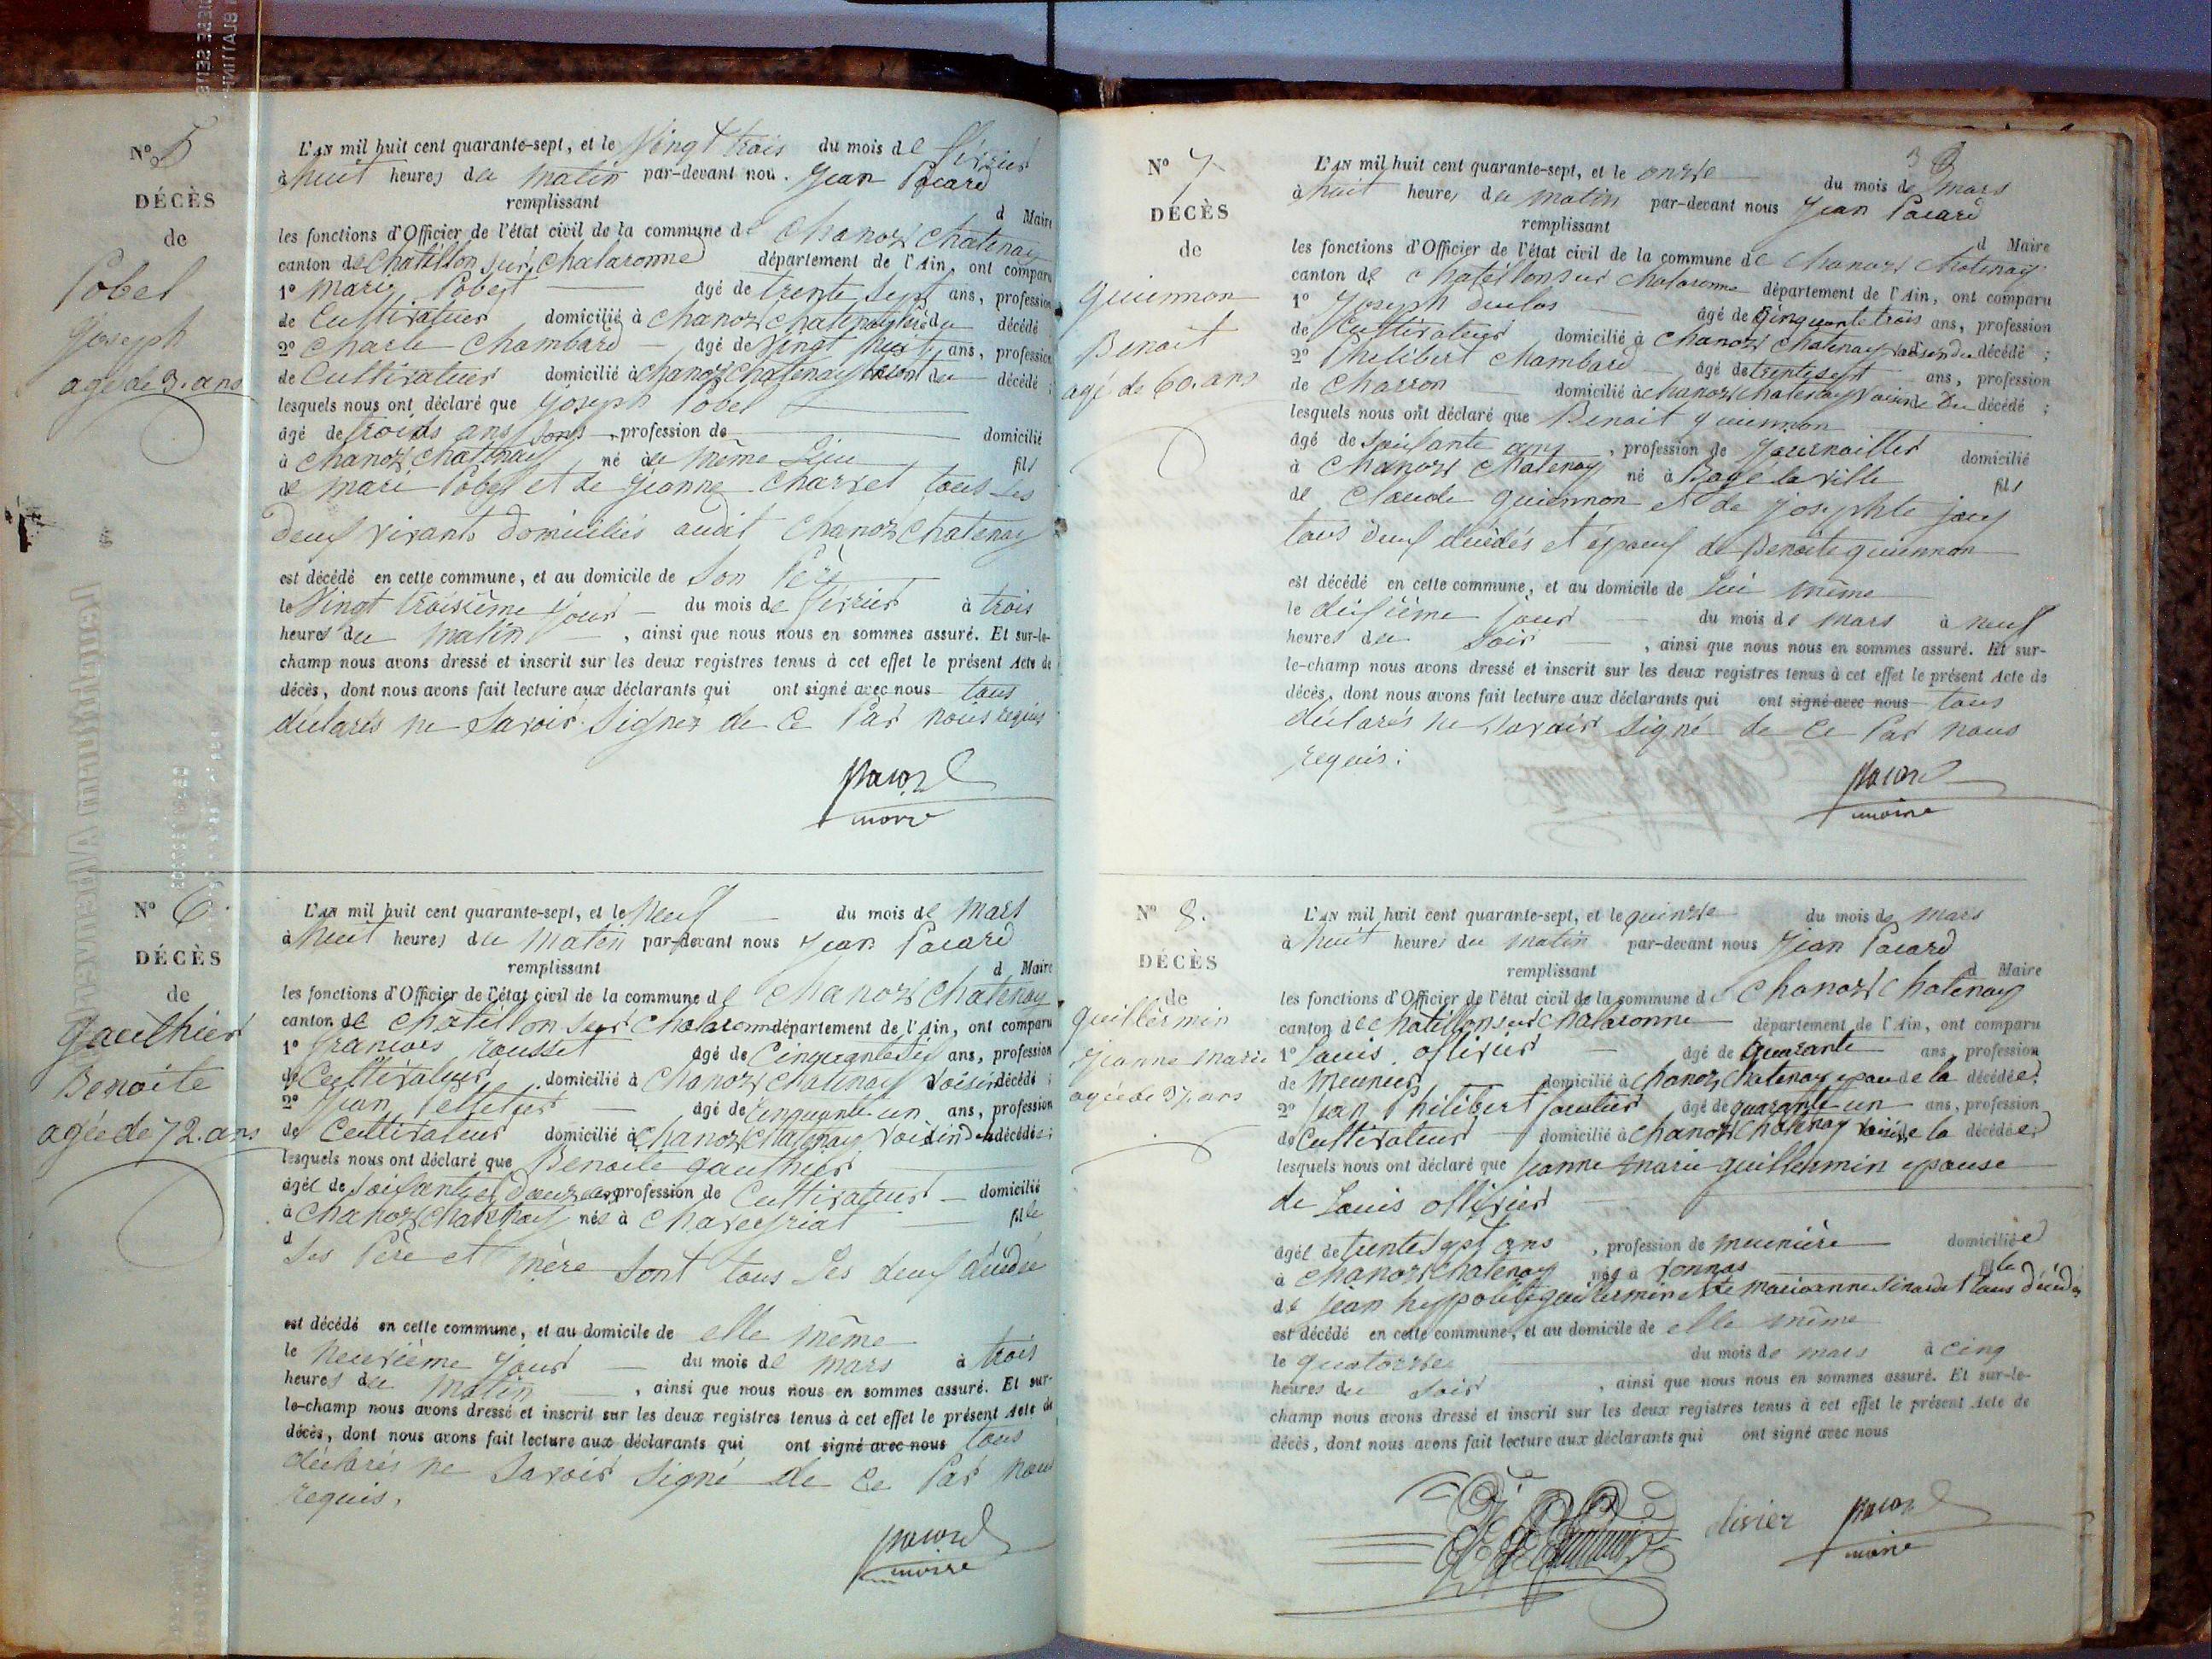 N° 5
DÉCÈS
de
Pobel
Joseph
agé de 3. ans
L'AN mil huit cent quarante-sept, et le Vingt trois du mois de fevrier
à huit heures du matin par-devant nou. Jean Pacard
remplissant d Maire
les fonctions d'Officier de l'état civil de la commune de Chanoz Chatenay
canton de Chatillon sur Chalaronne département de l'Ain, ont comparu
1° Marie Pobel âgé de trente sept ans, profession
de Cultivateur domicilié à Chanoz Chatenay décédé
2° Charle Chambard âgé de Vingt huit ans, profession
de Cultivateur domicilié à Chanoz Chatenay voisin du décédé ;
lesquels nous ont déclaré que Joseph Pobel
âgé de trois ans , profession de domicilié
à Chanoz Chatenay né au même Lieu fils
de Marie Pobel et de Jeanne Charvet tous les
deux vivants domiciliés audit Chanoz Chatenay
est décédé en cette commune, et au domicile de Son Père
le Vingt troisième jour du mois de fevrier à trois
heures du matin , ainsi que nous nous en sommes assuré. Et sur-le-
champ nous avons dressé et inscrit sur les deux registres tenus à cet effet le présent Acte de
décès, dont nous avons fait lecture aux déclarants qui ont signé avec nous tous
déclarés ne savoir signer de ce Par nous requis
Pacard
maire
N° 6.
DÉCÈS
de
Gauthier
Benoite
agée de 72. ans
L'AN mil huit cent quarante-sept, et le neuf du mois de mars
à huit heures du matin par-devant nous Jean Pacard
remplissant d Maire
les fonctions d'Officier de l'état civil de la commune de Chanoz Chatenay
canton de Chatillon sur Chalaronne département de l'Ain, ont comparu
1° francois rousset âgé de Cinquante six ans, profession
de Cultivateur domicilié à Chanoz Chatenay voisin décédé ;
2° Jean Pelletier âgé de Cinquante un ans, profession
de Cultivateur domicilié à Chanoz Chatenay voisin décédée ;
lesquels nous ont déclaré que Benoite gauthier
âgée de soixante et douze ans profession de Cultivateur domicilié
à Chanoz Chatenay née à Chaveyriat fille
d
Ses Père et mère sont tous les deux décédés
est décédé en cette commune, et au domicile de elle même
le neuvième jour du mois de mars à trois
heures du matin , ainsi que nous nous en sommes assuré. Et sur-
le-champ nous avons dressé et inscrit sur les deux registres tenus à cet effet le présent Acte de
décès, dont nous avons fait lecture aux déclarants qui ont signé avec nous tous
déclarés ne savoir signé de ce Par nous
requis.
Pacard
maire
3
N° 7
DÉCÈS
de
quiennon
Benoit
agé de 60. ans
L'AN mil huit cent quarante-sept, et le onze du mois de mars
à huit heures du matin par-devant nous Jean Pacard
remplissant d Maire
les fonctions d'Officier de l'état civil de la commune de Chanoz Chatenay
canton de Chatillon sur Chalaronne département de l'Ain, ont comparu
1° Joseph duclos âgé de Cinquante trois ans, profession
de Cultivateur domicilié à Chanoz Chatenay voisin du décédé ;
2° Philibert Chambard âgé de trente sept ans, profession
de Charron domicilié à Chanoz Chatenay voisin du décédé ;
lesquels nous ont déclaré que Benoit quiennon
âgé de soixante ans , profession de Journailler domicilié
à Chanoz Chatenay né à Bagé la ville fils
de Claude quiennon et de Josephte
tous deux décédés et époux de Benoite quiennon
est décédé en cette commune, et au domicile de Lui même
le dixième jour du mois de mars à neuf
heures du soir , ainsi que nous nous en sommes assuré. Et sur-
le-champ nous avons dressé et inscrit sur les deux registres tenus à cet effet le présent Acte de
décès, dont nous avons fait lecture aux déclarants qui ont signé avec nous tous
déclarés ne savoir signé de ce Par nous
requis.
Pacard
maire
N° 8.
DÉCÈS
de
guillermin
Jeanne Marie
agée de 37. ans
L'AN mil huit cent quarante-sept, et le quinze du mois de mars
à huit heures du matin par-devant nous Jean Pacard
remplissant d Maire
les fonctions d'Officier de l'état civil de la commune de Chanoz Chatenay
canton de Chatillon sur Chalaronne département de l'Ain, ont comparu
1° Louis ollivier âgé de quarante ans, profession
de meunier domicilié à Chanoz Chatenay epou de la décédée ;
2° Jean Philibert âgé de quarante un ans, profession
de Cultivateur domicilié à Chanoz Chatenay de la décédée ;
lesquels nous ont déclaré que Jeanne Marie guillermin epouse
de Louis ollivier
âgée de trente sept ans , profession de meunière domiciliée
à Chanoz Chatenay née à Vonnas fille
de Jean hyppolite guillermin et de marianne tous décédés
est décédé en cette commune, et au domicile de elle même
le quatorze du mois de mars à cinq
heures du soir , ainsi que nous nous en sommes assuré. Et sur-le-
champ nous avons dressé et inscrit sur les deux registres tenus à cet effet le présent Acte de
décès, dont nous avons fait lecture aux déclarants qui ont signé avec nous
olivier Pacard
maire